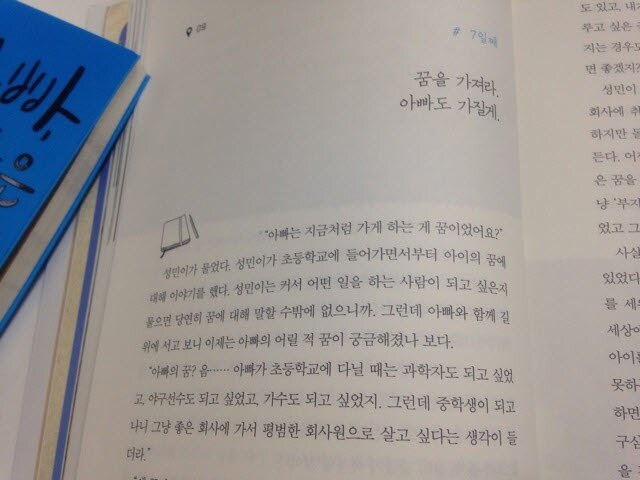 아빠,
09
# 7일째
꿈을 가져라.
아빠도 가질게.
"아빠는 지금처럼 가게 하는 게 꿈이었어요?"
성민이가 물었다. 성민이가 초등학교에 들어가면서부터 아이의 꿈에
대해 이야기를 했다. 성민이는 커서 어떤 일을 하는 사람이 되고 싶은지
물으면 당연히 꿈에 대해 말할 수밖에 없으니까. 그런데 아빠와 함께 길
위에 서고 보니 이제는 아빠의 어릴 적 꿈이 궁금해졌나 보다.
"아빠의 꿈? 음…… 아빠가 초등학교에 다닐 때는 과학자도 되고 싶었
고, 야구선수도 되고 싶었고, 가수도 되고 싶었지. 그런데 중학생이 되고
나니 그냥 좋은 회사에 가서 평범한 회사원으로 살고 싶다는 생각이 들
더라."
도 있고, 내
루고 싶은
지는 경우
면 좋겠지
성민이
회사에 취
하지만 돌
든다. 어
은 꿈을
냥 '부자
었고 그
사실
있었다
를 세
세상이
아이
지 못
하면
구심
을